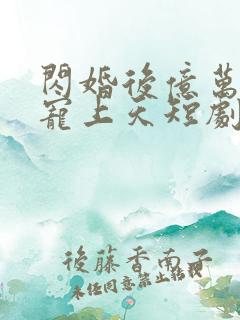 閃婚後億萬
寵上天短劇
後藤香南子
未經同意禁止轉載